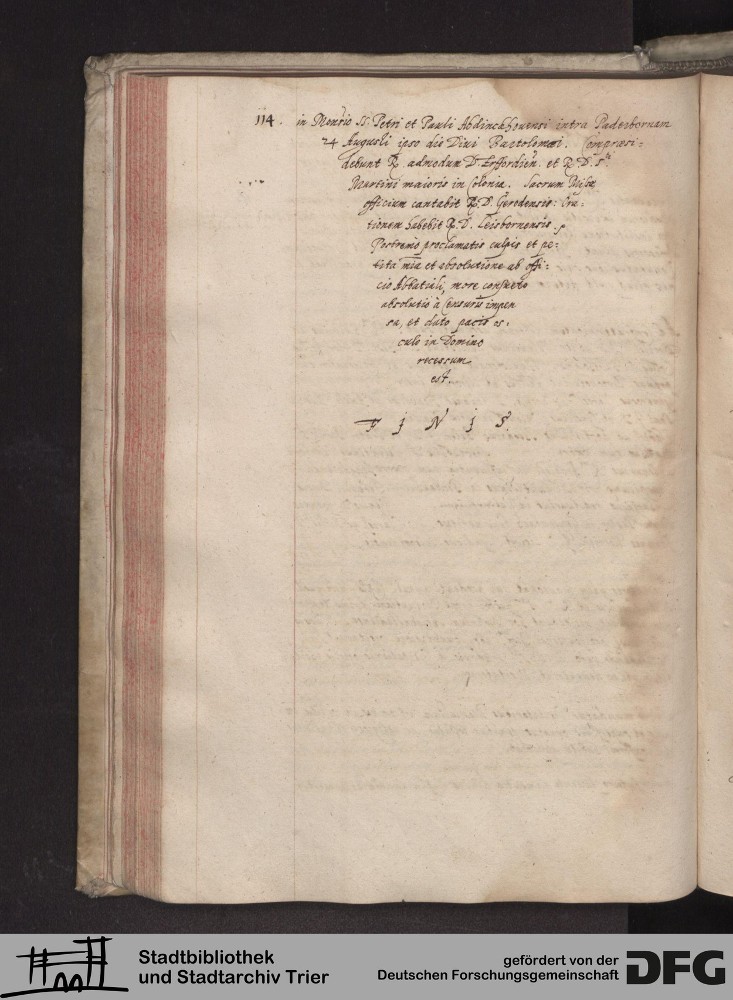 114. in Monrio SS. Petri et Pauli Abdinckhouensi intra Paderbornam
24 Augusti ipso die Diui Bartolomæi. Compræsi-
debunt R. admodum D. Erffordien. et R. D. Sti
Martini maioris in Colonia. Sacrum Missæ
officium cantabit R. D. Gerodensis: Ora-
tionem habebit R. D. Leisbornensis.
Postremo proclamatis culpis et pe-
tita mia et absolutione ab offi-
cio Abbatiali, more consueto
absolutio à Censuris impen
sa, et dato pacis os-
culo in Domino
recessum
est.
F I N I S.
Stadtbibliothek
und Stadtarchiv Trier
gefördert von der
Deutschen Forschungsgemeinschaft
DFG